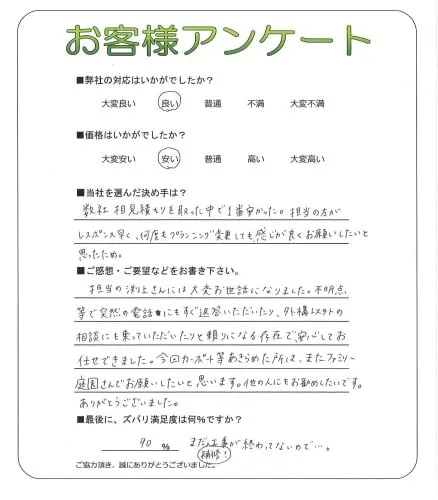 お客様アンケート
■弊社の対応はいかがでしたか？
大変良い 良い 普通 不満 大変不満
■価格はいかがでしたか？
大変安い 安い 普通 高い 大変高い
■当社を選んだ決め手は？
数社 相見積もりを取った中で1番安かった。担当の方が
レスポンス早く、何度もプランニング変更しても感じが良くお願いしたいと
思ったため。
■ご感想・ご要望などをお書き下さい。
担当の渕上さんには大変お世話になりました。不明点
等で突然の電話にもすぐ返答いただいたり、外構以外の
相談にも乗っていただいたりと頼りになる存在で安心してお
任せできました。今回カーポート等あきらめた所は、またファミリー
庭園さんでお願いしたいと思います。他の人にもお勧めしたいです。
ありがとうございました。
■最後に、ズバリ満足度は何%ですか？
90 % まだ工事が終わってないので…。
補修！
ご協力頂き、誠にありがとうございました。